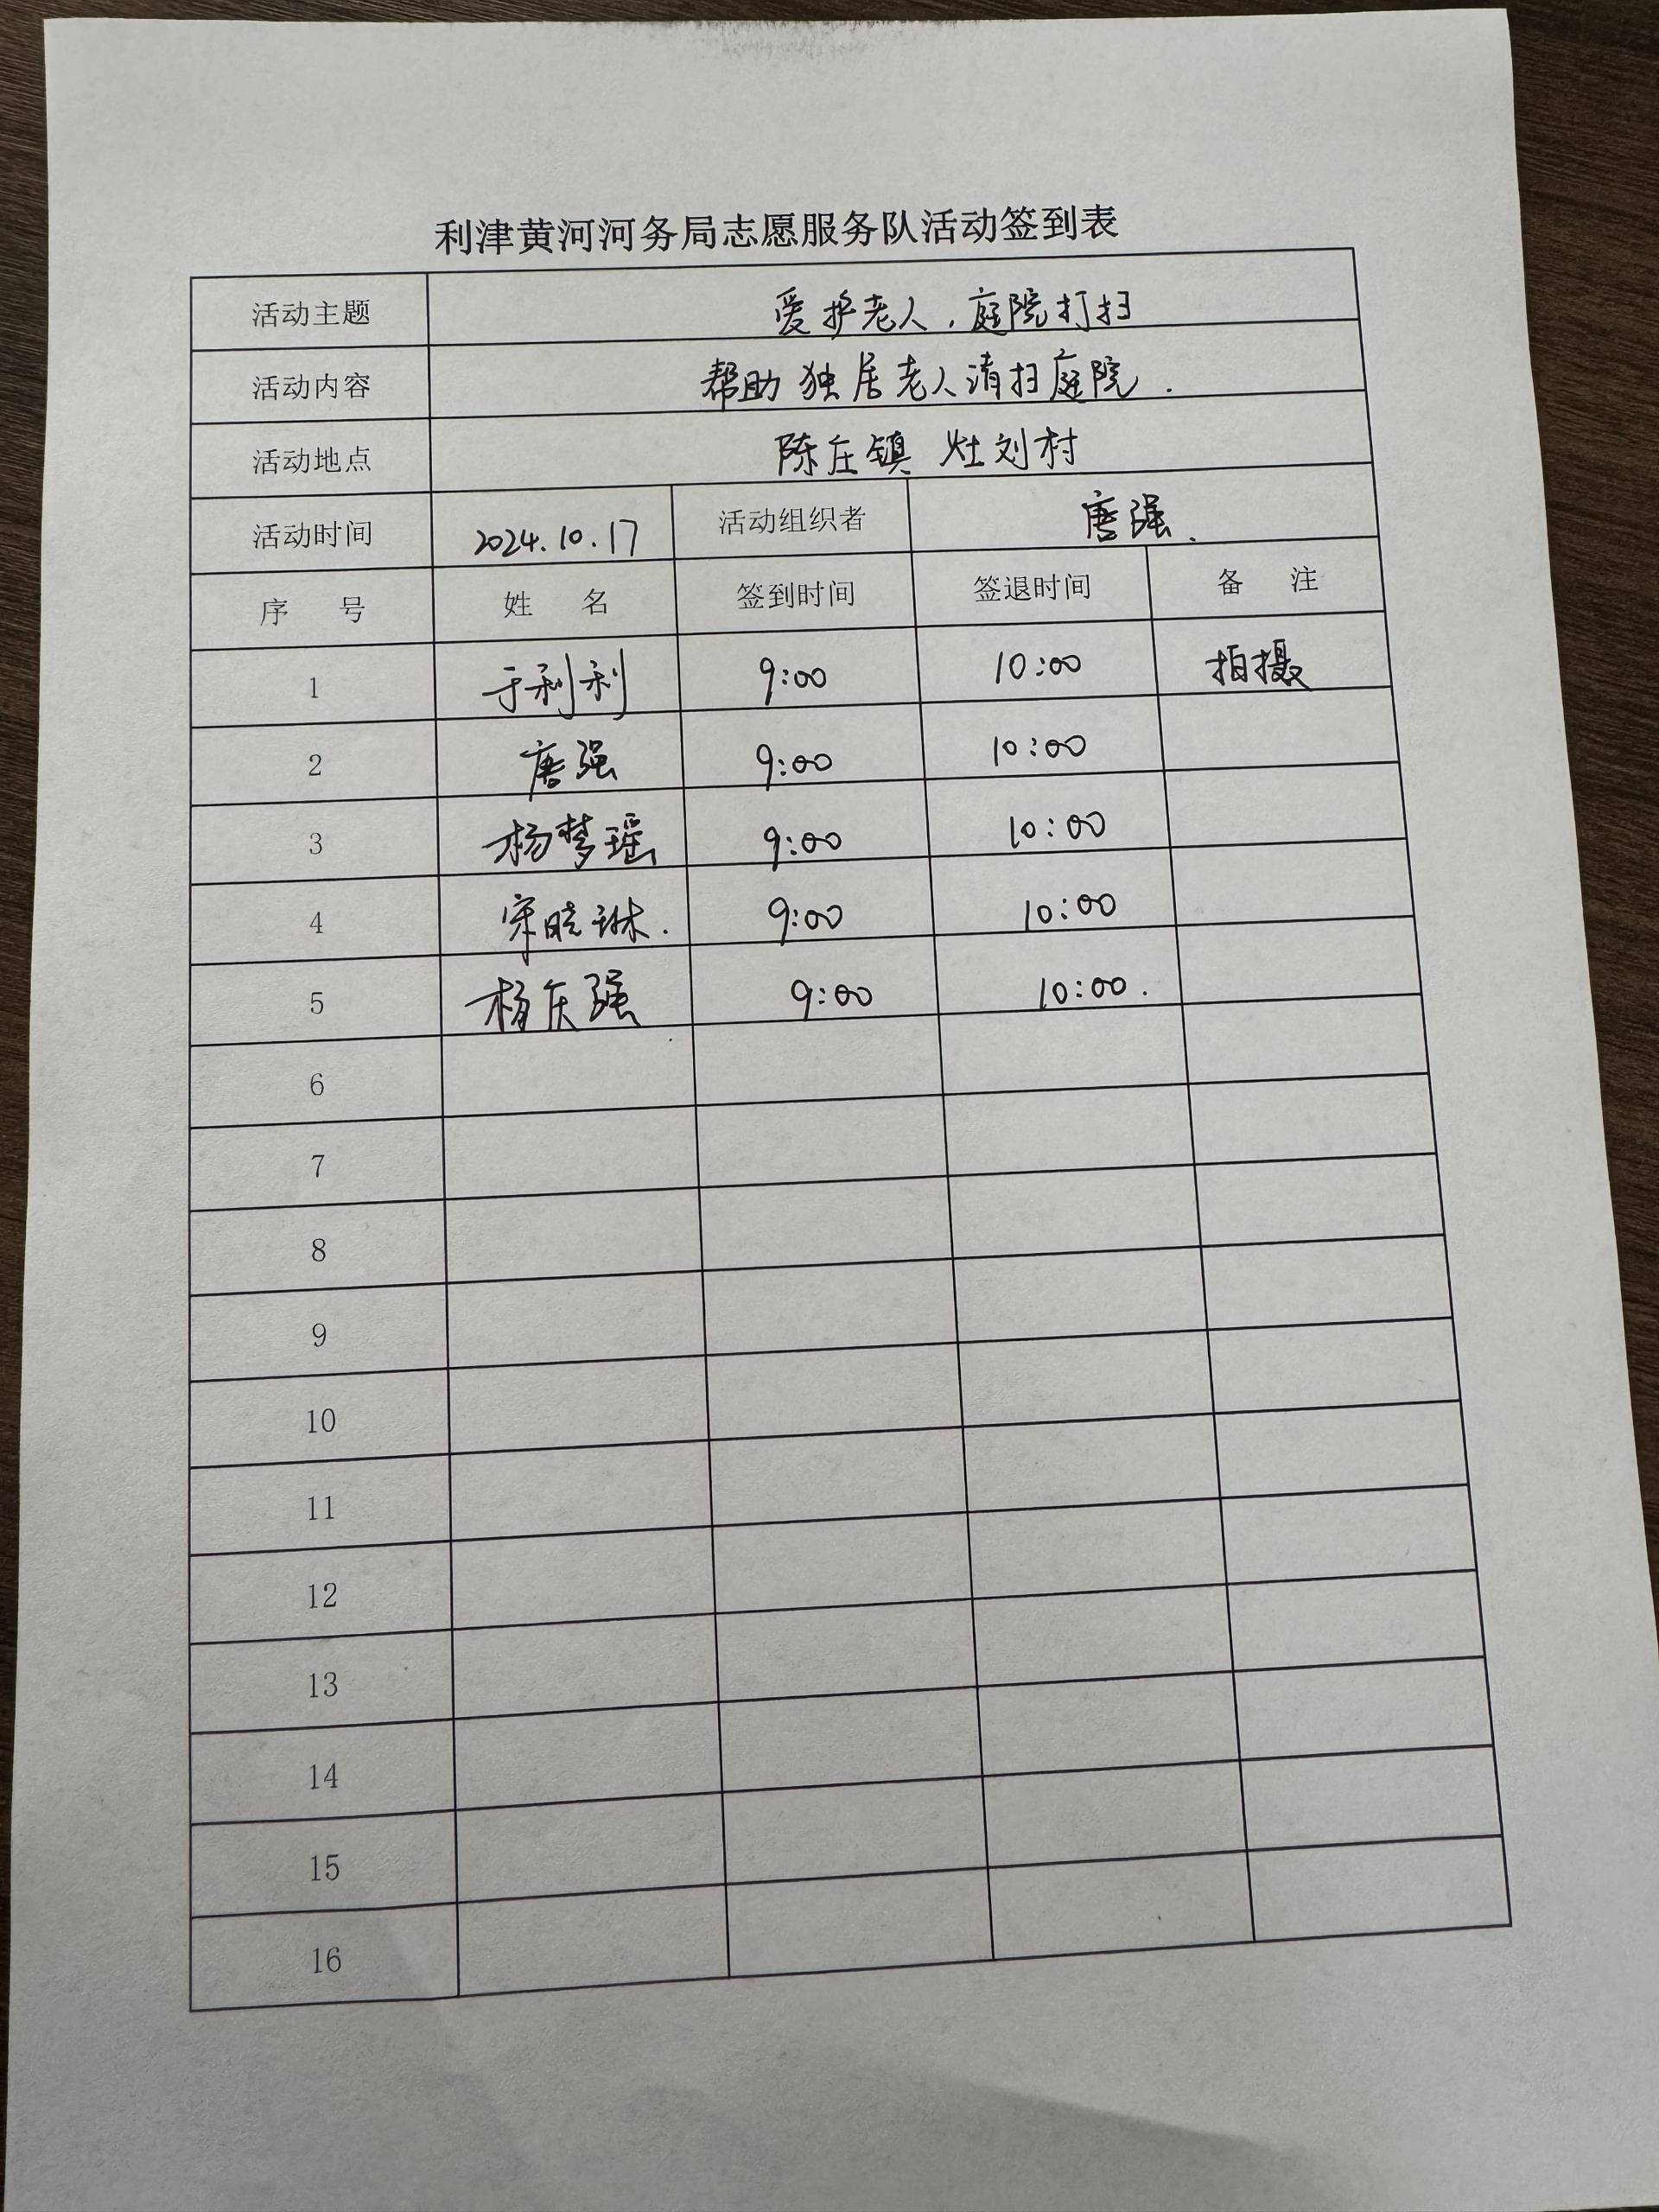 利津黄河河务局志愿服务队活动签到表
活动主题 爱护老人，庭院打扫
活动内容 帮助独居老人清扫庭院.
活动地点 陈庄镇 灶刘村
活动时间 2024.10.17 活动组织者 唐强.
序 号 姓 名 签到时间 签退时间 备 注
1 于利利 9:00 10:00 拍摄
2 唐强 9:00 10:00
3 杨梦瑶 9:00 10:00
4 宋晓琳. 9:00 10:00
5 杨庆强 9:00 10:00.
6
7
8
9
10
11
12
13
14
15
16